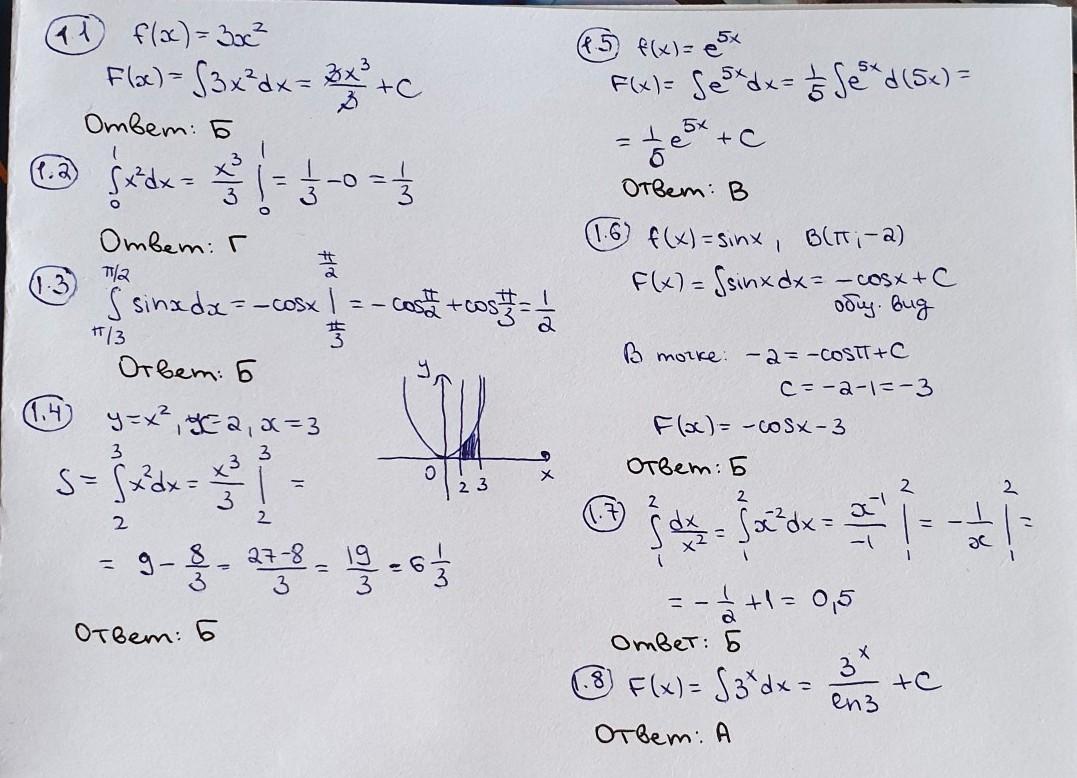 1.1 f(x) = 3x²
F(x) = ∫3x²dx = 3x³/3 + C
Ответ: Б
1.2 ∫₀¹ x²dx = x³/3 |₀¹ = 1/3 - 0 = 1/3
Ответ: Г
1.3 ∫_{π/3}^{π/2} sinx dx = -cosx |_{π/3}^{π/2} = -cos π/2 + cos π/3 = 1/2
Ответ: Б
1.4 y = x², x = 2, x = 3
y
0 2 3 x
S = ∫₂³ x²dx = x³/3 |₂³ =
= 9 - 8/3 = (27-8)/3 = 19/3 = 6 1/3
Ответ: Б
1.5 f(x) = e^{5x}
F(x) = ∫e^{5x}dx = 1/5 ∫e^{5x}d(5x) =
= 1/5 e^{5x} + C
Ответ: В
1.6 f(x) = sinx, B(π; -2)
F(x) = ∫sinxdx = -cosx + C
общ. вид
В точке: -2 = -cosπ + C
C = -2-1 = -3
F(x) = -cosx - 3
Ответ: Б
1.7 ∫₁² dx/x² = ∫₁² x⁻²dx = x⁻¹/-1 |₁² = -1/x |₁² =
= -1/2 + 1 = 0,5
Ответ: Б
1.8 F(x) = ∫3ˣdx = 3ˣ/ln3 + C
Ответ: А